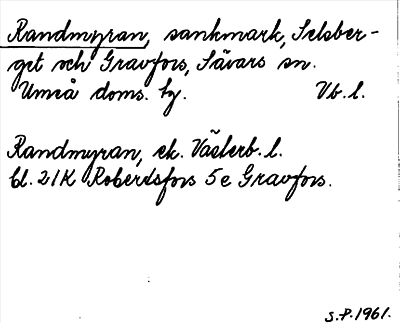 Randmyran, sankmark, Selsber-
get och Gravfors, Sävars sn.
Umeå doms. hg. Vb. l.
Randmyran, ek. Västerb. l.
bl. 21K Robertsfors 5e Gravfors.
S.P. 1961.